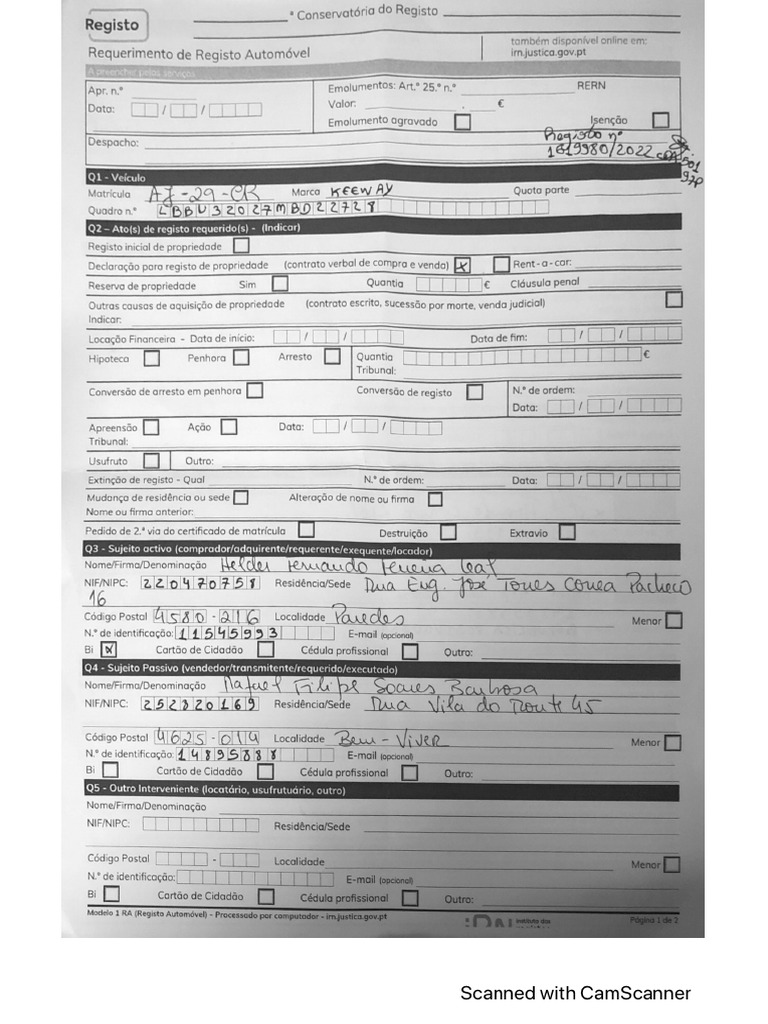 Registo
ª Conservatória do Registo
Requerimento de Registo Automóvel
também disponível online em:
irn.justica.gov.pt
A preencher pelos serviços
Apr. n.º
Emolumentos: Art.º 25.º n.º RERN
Data: / /
Valor: . €
Emolumento agravado Isenção
Despacho:
Registo nº
1619980/2022
Q1 - Veículo
Matrícula AJ-29-CR Marca KEEWAY Quota parte
Quadro n.º LBBV32027MBD22728
Q2 – Ato(s) de registo requerido(s) - (Indicar)
Registo inicial de propriedade
Declaração para registo de propriedade (contrato verbal de compra e venda) x Rent-a-car:
Reserva de propriedade Sim Quantia € Cláusula penal
Outras causas de aquisição de propriedade (contrato escrito, sucessão por morte, venda judicial)
Indicar:
Locação Financeira - Data de início: / / Data de fim: / /
Hipoteca Penhora Arresto Quantia €
Tribunal:
Conversão de arresto em penhora Conversão de registo N.º de ordem:
Data: / /
Apreensão Ação Data: / /
Tribunal:
Usufruto Outro:
Extinção de registo - Qual N.º de ordem: Data: / /
Mudança de residência ou sede Alteração de nome ou firma
Nome ou firma anterior:
Pedido de 2.ª via do certificado de matrícula Destruição Extravio
Q3 - Sujeito activo (comprador/adquirente/requerente/exequente/locador)
Nome/Firma/Denominação Helder Fernando Ferreira Leal
NIF/NIPC: 220470758 Residência/Sede Rua Eng. José Torres Correa Pacheco
16
Código Postal 4580-216 Localidade Paredes Menor
N.º de identificação: 11545993 E-mail (opcional)
Bi x Cartão de Cidadão Cédula profissional Outro:
Q4 - Sujeito Passivo (vendedor/transmitente/requerido/executado)
Nome/Firma/Denominação Rafael Filipe Soares Barbosa
NIF/NIPC: 252820169 Residência/Sede Rua Vila do Monte 45
Código Postal 4625-014 Localidade Bem-Viver Menor
N.º de identificação: 14895888 E-mail (opcional)
Bi Cartão de Cidadão Cédula profissional Outro:
Q5 - Outro Interveniente (locatário, usufrutuário, outro)
Nome/Firma/Denominação
NIF/NIPC: Residência/Sede
Código Postal - Localidade Menor
N.º de identificação: E-mail (opcional)
Bi Cartão de Cidadão Cédula profissional Outro:
Modelo 1 RA (Registo Automóvel) - Processado por computador - irn.justica.gov.pt
Página 1 de 2
Scanned with CamScanner